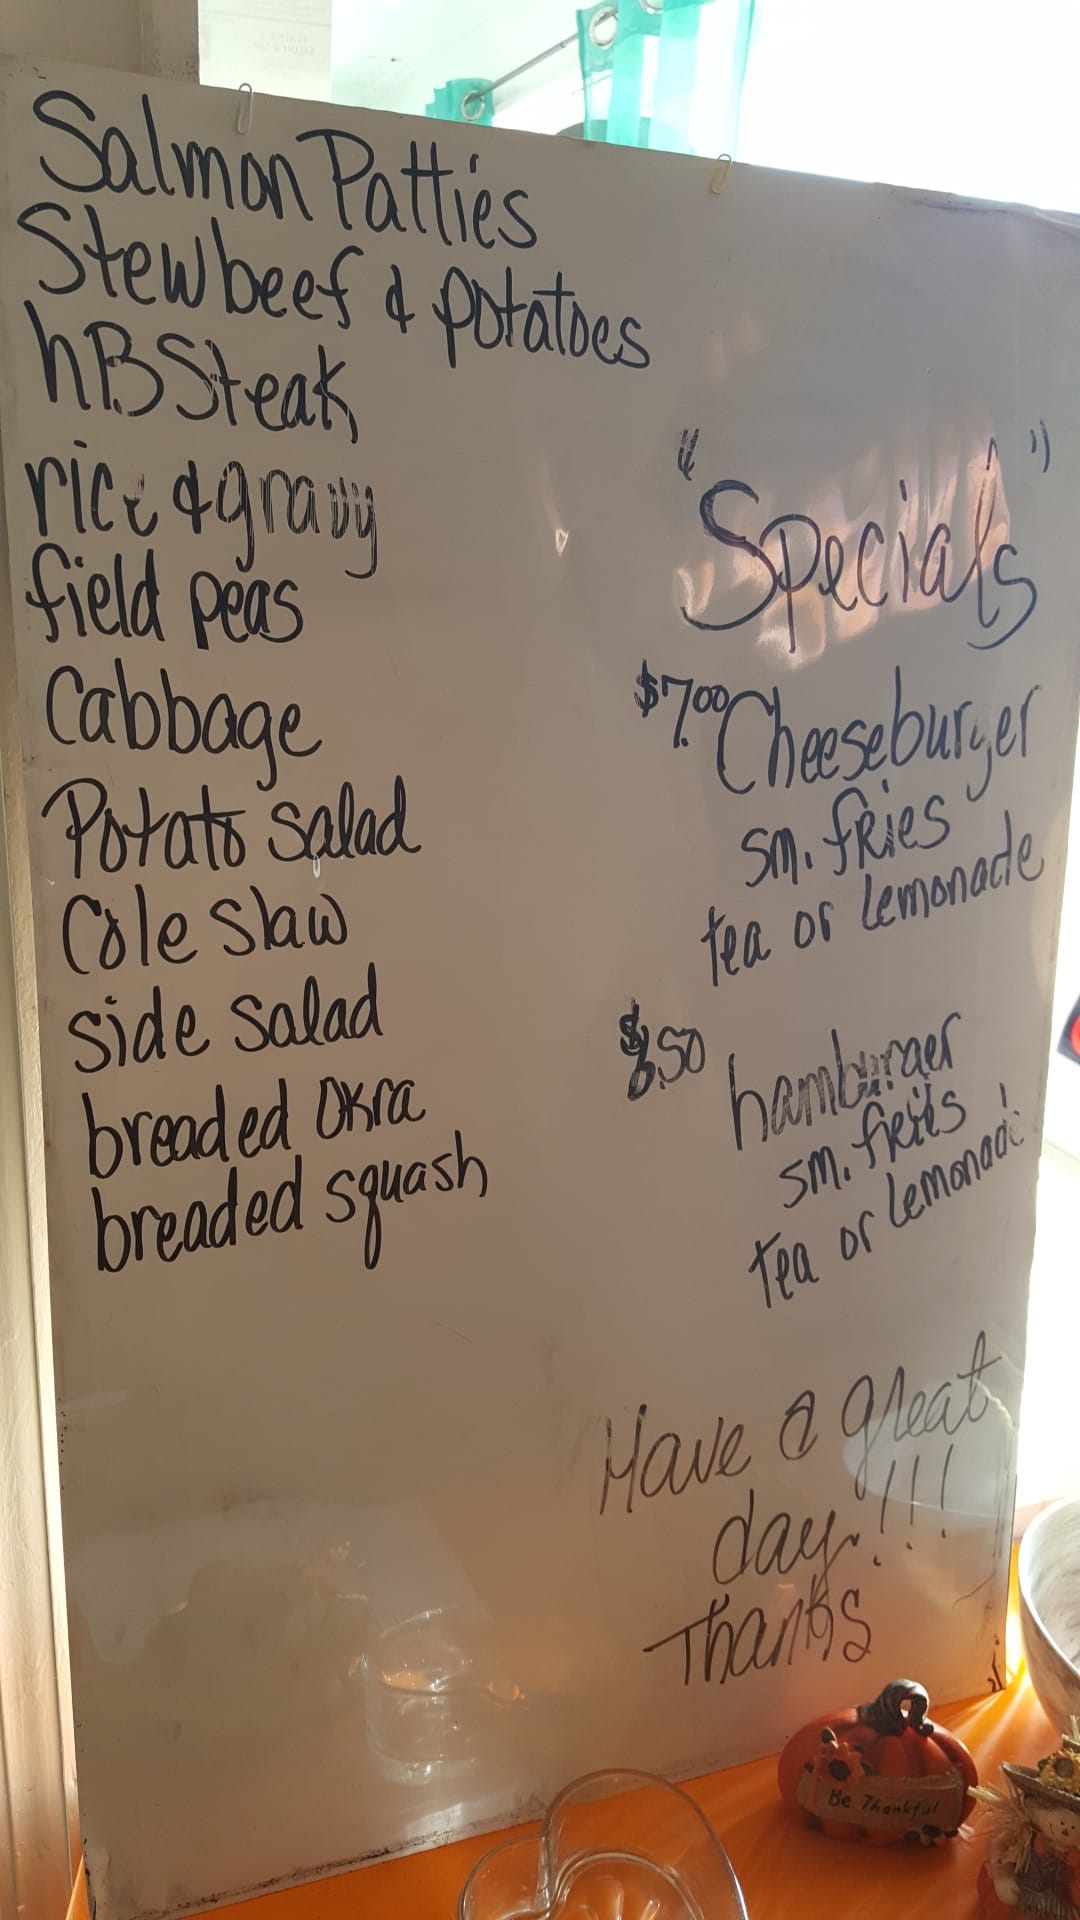 Salmon Patties
Stew beef & potatoes
hB Steak
rice & gravy
field peas
Cabbage
Potato salad
Cole slaw
side salad
breaded okra
breaded squash
"Specials"
$7.00 Cheeseburger
sm. fries
tea or lemonade
hamburger
sm. fries
tea or lemonade
Have a great
day!!!
Thanks
Be Thankful